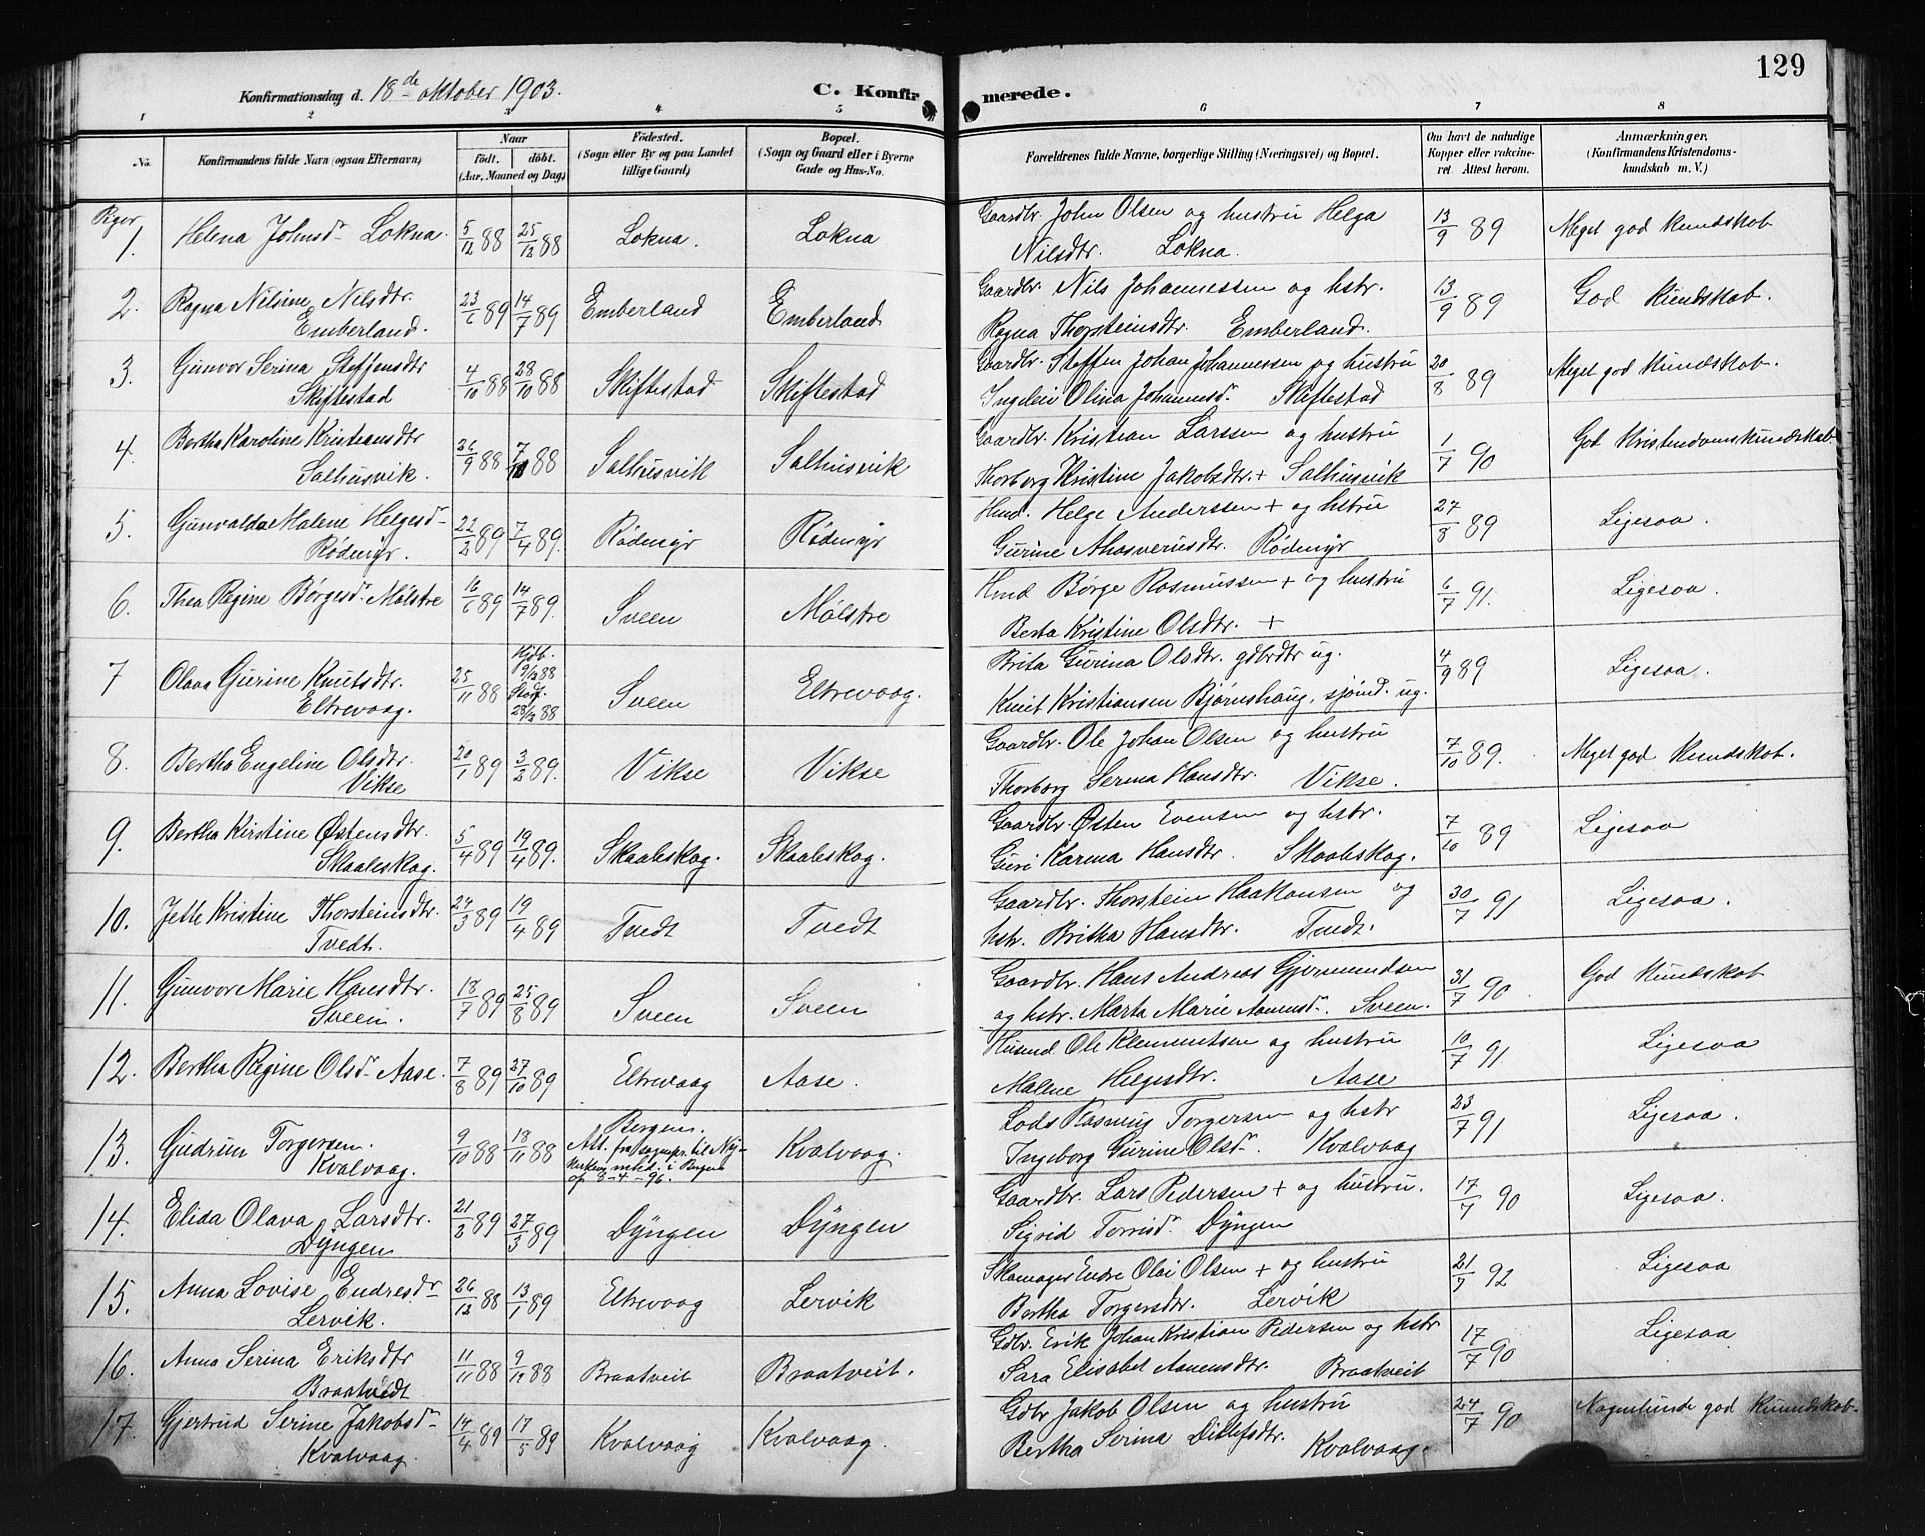 129
Konfirmationsdag d. 18de oktober 1903. C. Konfirmerede.
1 2 3 4 5 6 7 8
No. Konfirmandens fulde Navn (ogsaa Efternavn) Naar født. døbt. (Aar, Maaned og Dag) Fødested. (Sogn eller By og paa Landet tillige Gaard.) Bopæl. (Sogn og Gaard eller i Byerne Gade og Hus-No. Forældrenes fulde Navne, borgerlige Stilling (Næringsvei) og Bopæl. Om havt de naturlige Kopper eller vakcineret. Attest herom. Anmærkninger. (Konfirmandens Kristendomskundskab m. V.)
Piger
1. Helena Johnsdr Lokna. 5/12 88 25/12 88 Lokna. Lokna Gaardbr. John Olsen og hustru Helga 13/9 89 Meget god kundskab
Nilsdtr. Lokna.
2. Ragna Nilsine Nilsdtr. 23/6 89 14/7 89 Emberland Emberland Gaardbr. Nils Johannessen og hstr. 13/9 89 God kundskab.
Emberland. Ragna Thorsteinsdtr. Emberland.
3. Gunvor Serina Steffensdtr 4/10 88 28/10 88 Skiftestad Skiftestad Gaardbr. Steffen Johan Johannessen og hustru 20/8 89 Meget god kundskab.
Skiftestad Ingeleiv Olina Johannesdr. Skiftestad
4. Bertha Karoline Kristiansdtr 26/9 88 7/10 88 Salhusvik Salhusvik Gaardbr. Kristian Larssen og hustru 1/7 90 God Kristendomskundskab.
Salhusvik. Thorborg Kristine Jakobsdtr. + Salhusvik
5. Gunvalda Malene Helgesdr 22/2 89 7/4 89. Rødmyr Rødmyr Hmd. Helge Anderssen + og hstru 27/8 89 Ligesaa.
Rødmyr. Gurine Ahasverusdtr. Rødmyr
6. Thea Regine Børgesdr. Mølstre 16/6 89 14/7 89. Sveen Mølstre Hmd Børge Rasmussen + og hustru 6/7 91. Ligesaa.
Berta Kristine Olsdtr. +
7 Olava Gurine Knutsdtr. 25/11 88 Hjdb. 9/12 88 Stadf. 28/12 88 Sveen Eltrevaag. Brita Gurina Olsdtr. gdbrdtr ug. 4/9 89 Ligesaa.
Eltrevaag. Knut Kristiansen Bjørnshaug, sjømd. ug.
8. Bertha Engeline Olsdtr. 20/1 89 3/2 89. Vikse Vikse Gaardbr. Ole Johan Olsen og hustru 7/10 89. Meget god kundskab.
Vikse Thorborg Serina Hansdtr. Vikse.
9. Bertha Kirstine Østensdtr. 5/4 89 19/4 89. Skaaleskog. Skaaleskog. Gaardbr. Østen Evensen og hstr. 7/10 89 Ligesaa
Skaaleskog. Guri Karina Hansdtr. Skaaleskog.
10. Jette Kristine Thorsteinsdtr. 24/3 89 19/4 89 Tvedt Tvedt Gaardbr. Thorstein Haakonsen og 30/7 91 Ligesaa.
Tvedt. hstr. Britha Hansdtr. Tvedt.
11. Gunvor Marie Hansdtr. 18/7 89 25/8 89 Sveen Sveen Gaardbr. Hans Andreas Gjermundsen 31/7 90 God kundskab
Sveen. og hstr. Marta Marie Aanensdr. Sveen.
12. Bertha Regine Olsdr Aase. 7/8 89 27/10 89 Eltrevaag Aase. Husmd. Ole Klementsen og hustru 10/7 91 Ligesaa
Malene Helgesdtr. Aase
13. Gudrun Torgersen. 9/10 88 18/11 88 Bergen. Att. fra sognepr. til Nykirken mtd. i Bergen af 8-4-96. Kvalvaag. Lods Rasmus Torgersen og hstr 23/7 91 Ligesaa.
Kvalvaag. Ingeborg Gurine Olsdr. Kvalvaag
14. Elida Olava Larsdtr. 21/2 89 27/3 89 Dyngen Dyngen Gaardbr. Lars Pedersen + og hustru. 17/7 90 Ligesaa.
Dyngen Sigrid Torrisdr. Dyngen
15. Anna Lovise Endresdr 26/12 88 13/1 89 Eltrevaag Lervik Skomager Endre Olai Olsen + og hustru 21/9 92 Ligesaa
Lervik. Bertha Torgersdtr. Lervik
16. Anna Serina Eriksdtr 11/11 88 9/12 88 Braatveit Braatveit. Gdbr. Erik Johan Kristian Pedersen og hstr 17/7 90 Ligesaa
Braatvedt Sara Elisabet Aanensdtr. Braatveit
17. Gjertrud Serine Jakobsdr 14/4 89 17/5 89 Kvalvaag Kvalvaag. Gdbr Jakob Olsen og hustru 24/7 90 Nogenlunde god kundskab.
Kvalvaag. Bertha Serina Ditlefsdtr. Kvalvaag.